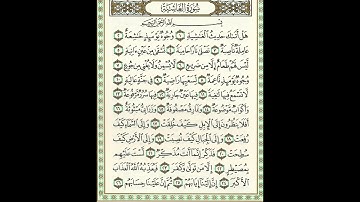 سُورَةُ الْغَاشِيَةِ
بِسْمِ اللَّهِ الرَّحْمَٰنِ الرَّحِيمِ
هَلْ أَتَىٰكَ حَدِيثُ الْغَٰشِيَةِ ١ وُجُوهٌ يَوْمَئِذٍ خَٰشِعَةٌ ٢
عَامِلَةٌ نَّاصِبَةٌ ٣ تَصْلَىٰ نَارًا حَامِيَةً ٤ تُسْقَىٰ مِنْ عَيْنٍ ءَانِيَةٍ ٥
لَّيْسَ لَهُمْ طَعَامٌ إِلَّا مِن ضَرِيعٍ ٦ لَّا يُسْمِنُ وَلَا يُغْنِي مِن جُوعٍ ٧
وُجُوهٌ يَوْمَئِذٍ نَّاعِمَةٌ ٨ لِّسَعْيِهَا رَاضِيَةٌ ٩ فِي جَنَّةٍ عَالِيَةٍ ١٠
لَّا تَسْمَعُ فِيهَا لَٰغِيَةً ١١ فِيهَا عَيْنٌ جَارِيَةٌ ١٢ فِيهَا سُرُرٌ مَّرْفُوعَةٌ ١٣
وَأَكْوَابٌ مَّوْضُوعَةٌ ١٤ وَنَمَارِقُ مَصْفُوفَةٌ ١٥ وَزَرَابِيُّ مَبْثُوثَةٌ ١٦
أَفَلَا يَنظُرُونَ إِلَى الْإِبِلِ كَيْفَ خُلِقَتْ ١٧ وَإِلَى السَّمَاءِ كَيْفَ
رُفِعَتْ ١٨ وَإِلَى الْجِبَالِ كَيْفَ نُصِبَتْ ١٩ وَإِلَى الْأَرْضِ كَيْفَ
سُطِحَتْ ٢٠ فَذَكِّرْ إِنَّمَا أَنتَ مُذَكِّرٌ ٢١ لَّسْتَ عَلَيْهِم
بِمُصَيْطِرٍ ٢٢ إِلَّا مَن تَوَلَّىٰ وَكَفَرَ ٢٣ فَيُعَذِّبُهُ اللَّهُ الْعَذَابَ
الْأَكْبَرَ ٢٤ إِنَّ إِلَيْنَا إِيَابَهُمْ ٢٥ ثُمَّ إِنَّ عَلَيْنَا حِسَابَهُم ٢٦